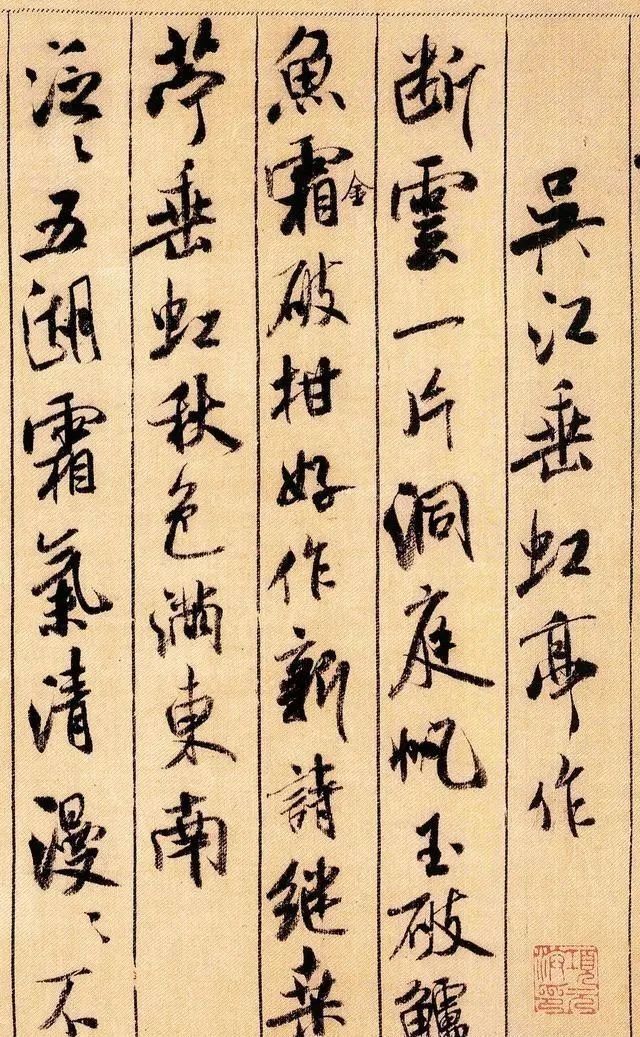 吳江垂虹亭作
断雲一片洞庭帆玉破鱸
魚霜金破柑好作新詩継桒
苧垂虹秋色滿東南
泛〻五湖霜氣清漫〻不